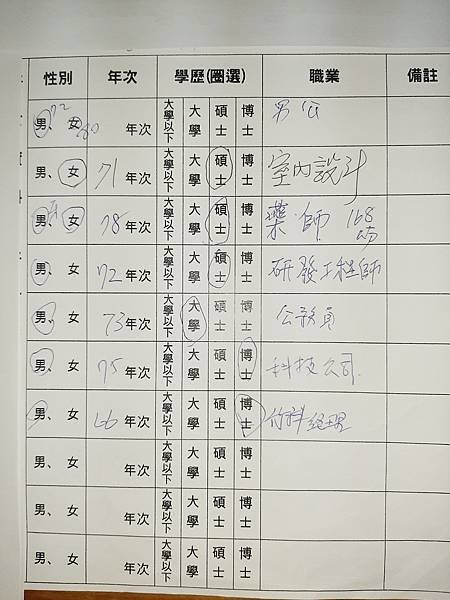 性別 年次 學歷(圈選) 職業 備註
男、女 72 80 年次 大學以下 大學 碩士 博士 男 公
男、女 71 年次 大學以下 大學 碩士 博士 室內設計
男、女 78 年次 大學以下 大學 碩士 博士 藥師 168
男、女 72 年次 大學以下 大學 碩士 博士 研發工程師
男、女 73 年次 大學以下 大學 碩士 博士 公務員
男、女 75 年次 大學以下 大學 碩士 博士 科技公司
男、女 66 年次 大學以下 大學 碩士 博士 竹科經理
男、女 年次 大學以下 大學 碩士 博士
男、女 年次 大學以下 大學 碩士 博士
男、女 年次 大學以下 大學 碩士 博士